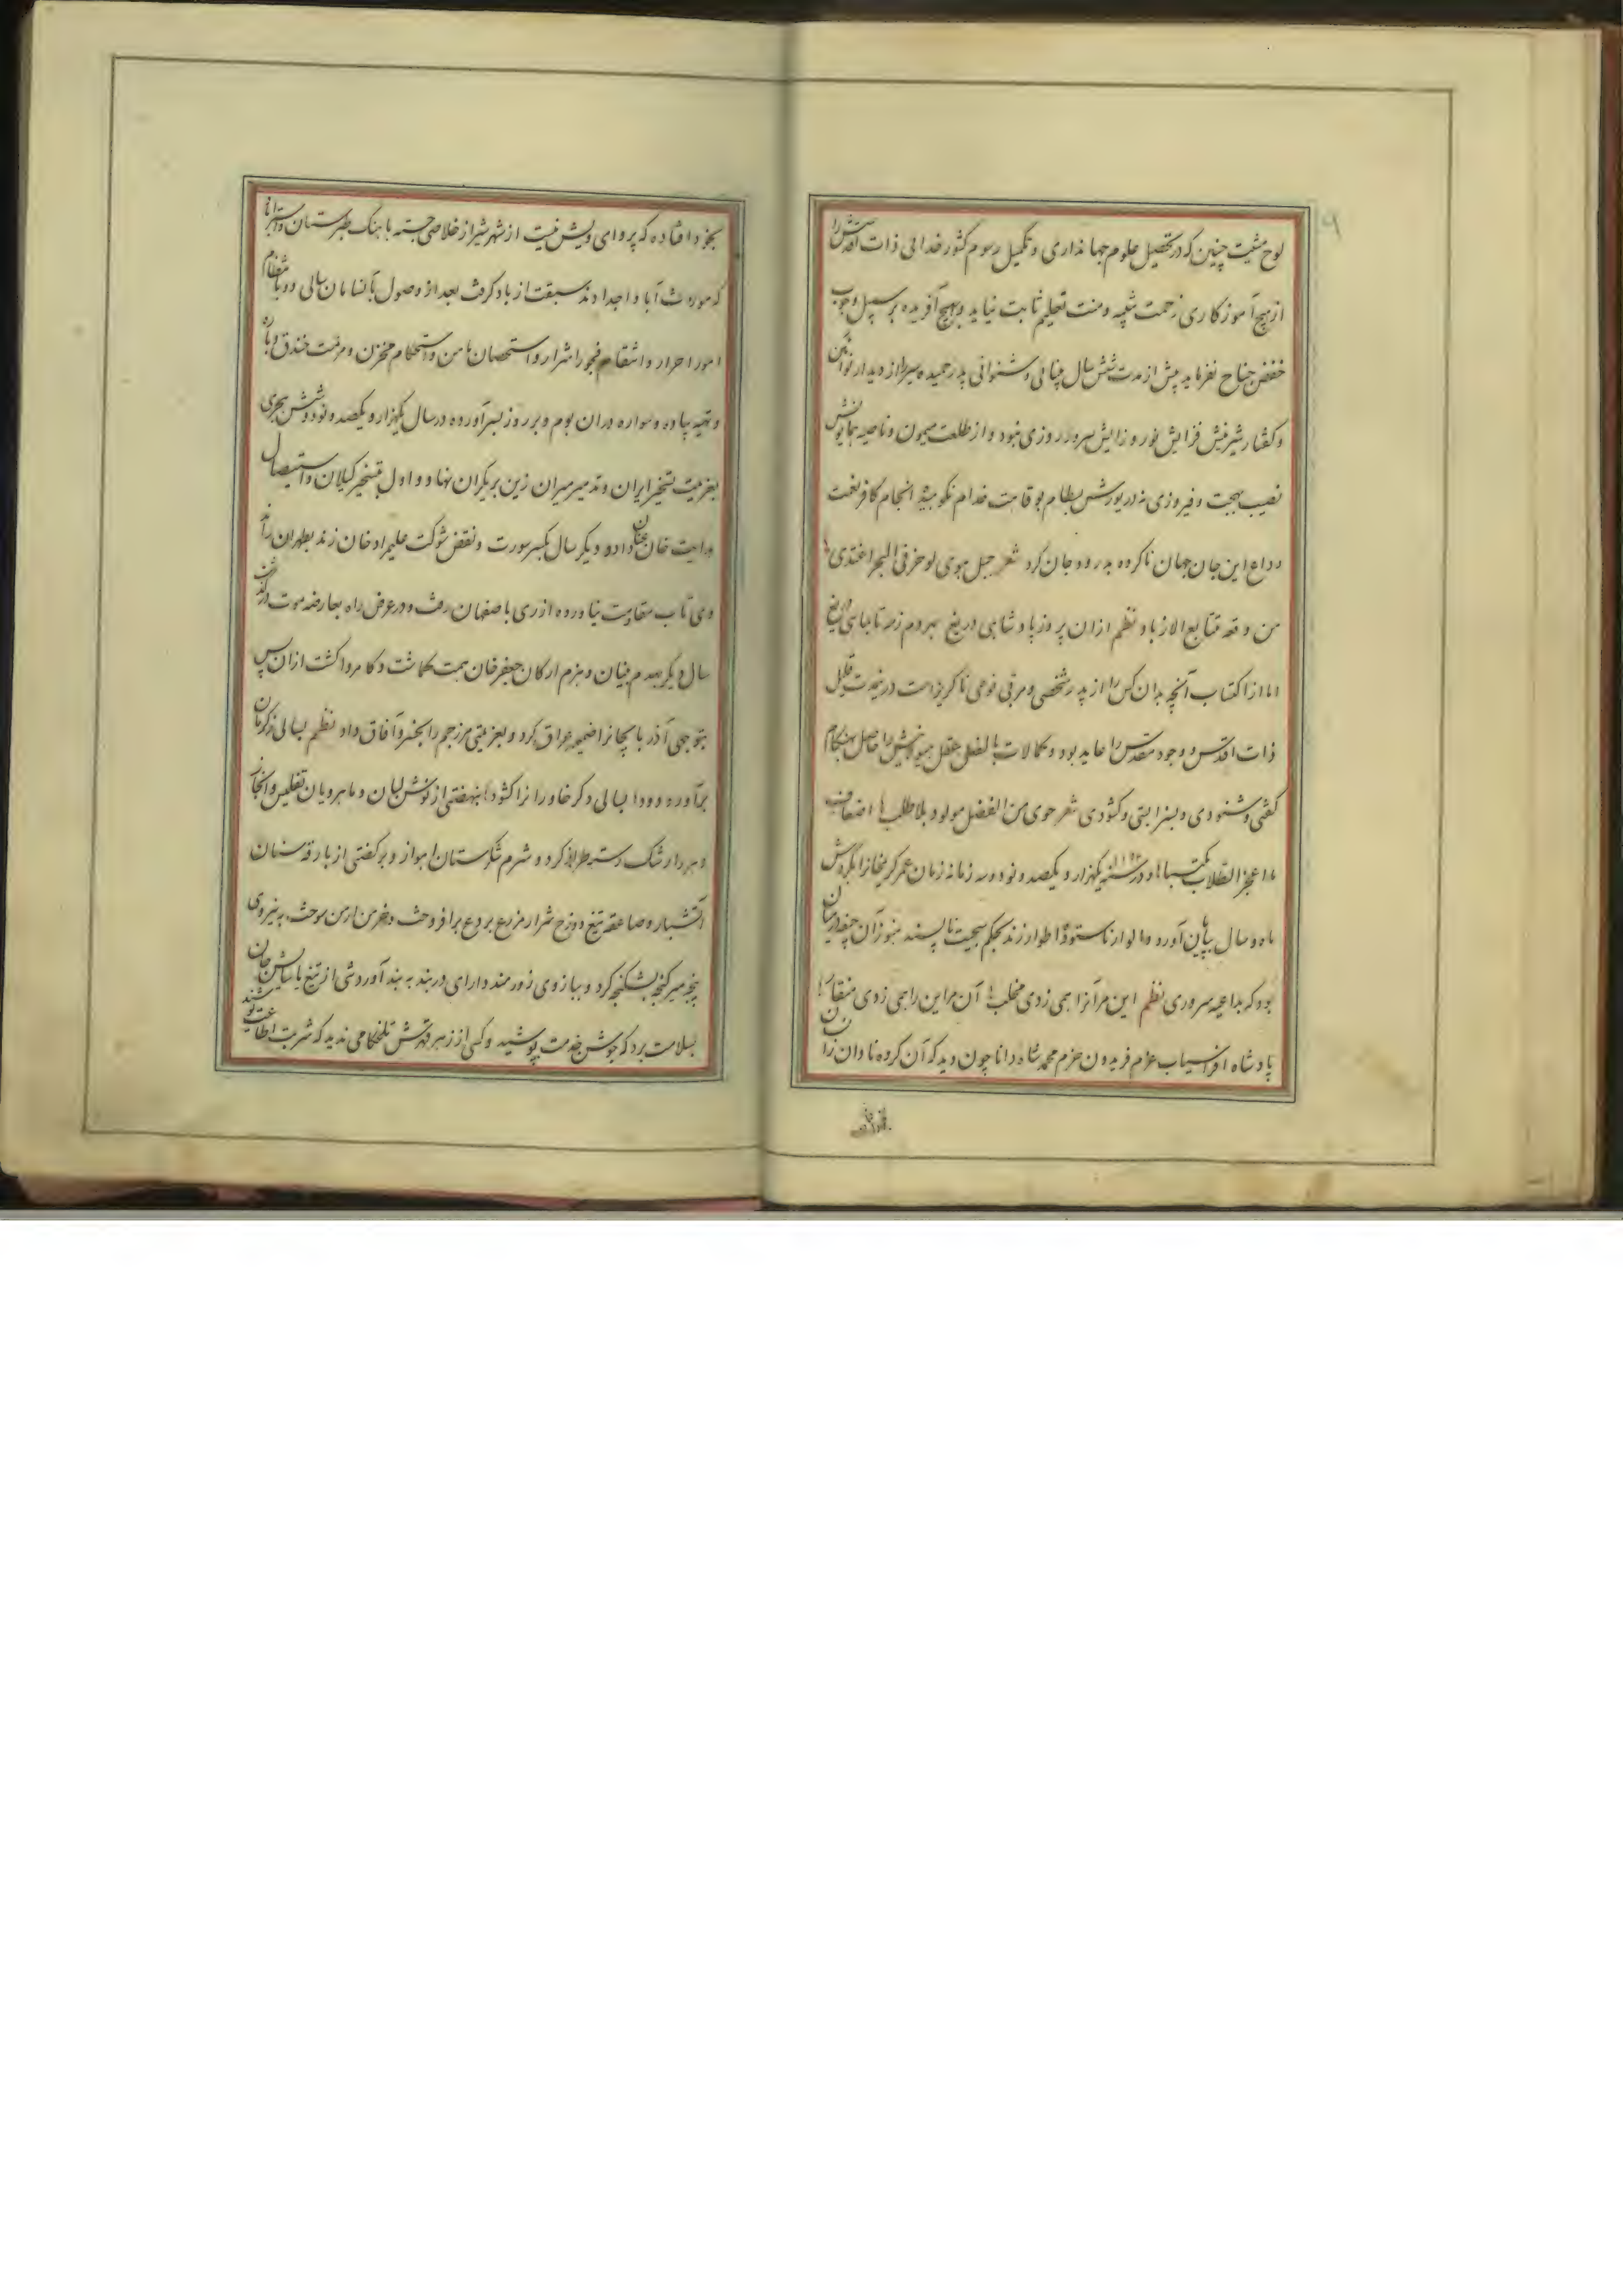 لوح مشیت چنین که در تحصیل علوم جهانداری و تکمیل رسوم کشور خدایی ذات اقدسش را
از هیچ آموزکاری زحمت و منت تعلیم ثابت نیاید و بهیچ آفریده بر سبیل وجوب
خفض جناح نفرماید پیش از مدت شش سال بینائی و شنوائی پدر حمیده سیر را از دیدار نوآئین
و کفتار شیرینش فزایش نور و زدایش سرور روزی نبود و از طلعت میمون و ناصیه همایونش
نصیب بهجت و فیروزی نه در یورش بسطام بوقاحت خدام نکوهیده انجام کافر نعمت
وداع این جان جهان ناکرده بدرود جان کرد شعر جبل هوی لو خر فی البحر اغتدی
من وقعه متتابع الازباد نظم ازان پر روز پادشاهی دریغ
اما از اکتساب آنچه بدان کس را از پدر مشخصی و مربی نوعی ناکریز است در مدت قلیل
ذات اقدس و وجود مقدس را عاید بود و کمالات بالفعل عقل هیولانیش را حاصل هنکام
کفتی و شنودی و بستی و کشودی شعر حوی من الفضل مولود بلا طلب اضعاف
ما اعجز الطلاب مکتسبا و در سنه ۱۱۹۳ یکهزار و یکصد و نود و سه زمانه زمان عمر کریمخان را بکردش
ماه و سال بپایان آورد و الوار ناستوده اطوار زند بحکم سجیت ناپسند هنوز آن چند در میان
بود که بداعیه سروری نظم این مر آنرا همی زدی مخلب آن مر این را همی زدی منقار
پادشاه افراسیاب عزم فریدون حزم محمد شاه دانا چون دید که آن کروه نادان را
بخود افتاده که پروای ویش نیست از شهر شیراز خلاصی جسته باهنک طبرستان و استراباد
که موروث آبا و اجدادند سبقت از باد کرفت بعد از وصول بآنسامان سالی دو بانتظام
امور احرار و انتقام فجور اشرار و استحصان مامن و استحکام مخزن و مرمت خندق و باره
و تهیه پیاده و سواره دران بوم و بر روز بسر آورده در سال یکهزار و یکصد و نود و شش هجری
بعزیمت تسخیر ایران و تدمیر میران زین بر یکران نهاد و اول بتسخیر کیلان و استیصال
هدایت خان عنان داد و دیکر سال بکسر سورت و نقض شوکت علیمراد خان زند بطهران راند
وی تاب مقاومت نیاورده از ری باصفهان رفت و در عرض راه بعارضه موت درکذشت
سال دیکر بهدم بنیان و هزم ارکان جعفر خان همت کماشت و کامروا کشت ازان پس
بتوجهی آذربایجانرا ضمیمه عراق کرد و بعزیمتی مرز جم را بخسرو آفاق داد نظم بسالی ز کرمان
برآورده دود بسالی دکر خاوران را کشود بنهضتی از نوش لبان و ماهرویان تفلیس و انجاز
آتشبار و صاعقه تیغ دوزخ شرار مزرع بردع برافروخت و خرمن ارمن سوخت به نیروی
پنجه میر کنجه بشکنجه کرد و ببازوی زورمند دارای دربند به بند آورد شی از تیغ یاساش جان
بسلامت برد که جوشن خدمت پوشید و کسی از زهر قهرش تلخکامی ندید که شربت اطاعت